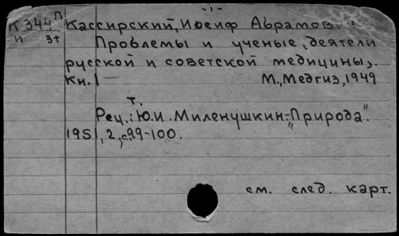 - 1 -
К 344 п Кассирский, Иосиф Абрамович
п 3+ Проблемы и ученые, деятели
русской и советской медицины,.
Кн. 1 — М., Медгиз, 1949
т.
Рец.: Ю.И. Миленушкин.-"Природа".
1951, 2, с.99-100.
см. след. карт.